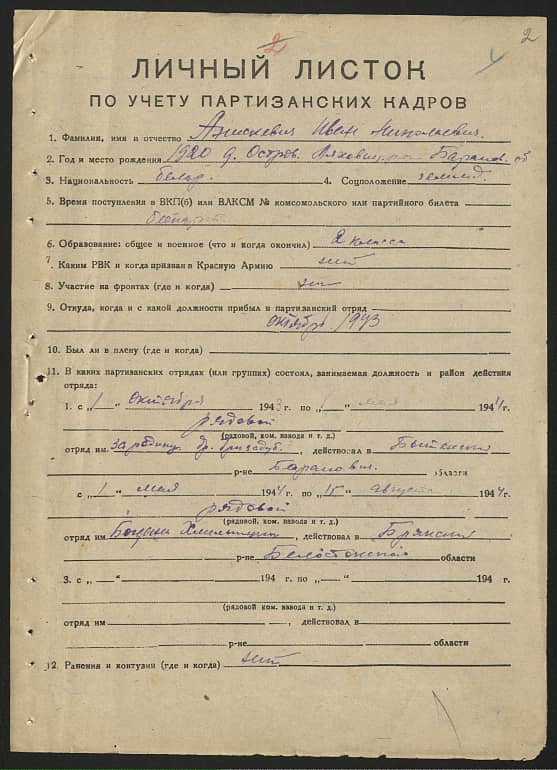 2
2
ЛИЧНЫЙ ЛИСТОК
ПО УЧЕТУ ПАРТИЗАНСКИХ КАДРОВ
1. Фамилия, имя и отчество Анискевич Иван Николаевич.
2. Год и место рождения 1920 д. Остров. Ляховицк. Баранов. об
3. Национальность белор. 4. Соцположение
5. Время поступления в ВКП(б) или ВЛКСМ № комсомольского или партийного билета
беспарт.
6. Образование: общее и военное (что и когда окончил) 2 класса
7. Каким РВК и когда призван в Красную Армию нет
8. Участие на фронтах (где и когда) нет
9. Откуда, когда и с какой должности прибыл в партизанский отряд
октябрь 1943
10. Был ли в плену (где и когда)
11. В каких партизанских отрядах (или группах) состоял, занимаемая должность и район действия
отряда:
1. с „1" октября 1943 г. по „1 мая 1944 г.
рядовой
(рядовой, ком. взвода и т. д.)
отряд им. За родину, действовал в Бытенский
р-не Баранович. области
с „1" мая 1944 г. по „15" августа 1944 г.
рядовой
(рядовой, ком. взвода и т. д.)
отряд им Богдана Хмельницк, действовал в Брянский
р-не Белостокской области
3. с „ — " 194 г. по „ — " 194 г.
(рядовой ком. взвода и т. д.)
отряд им — , действовал в
р-не области
12. Ранения и контузии (где и когда) нет